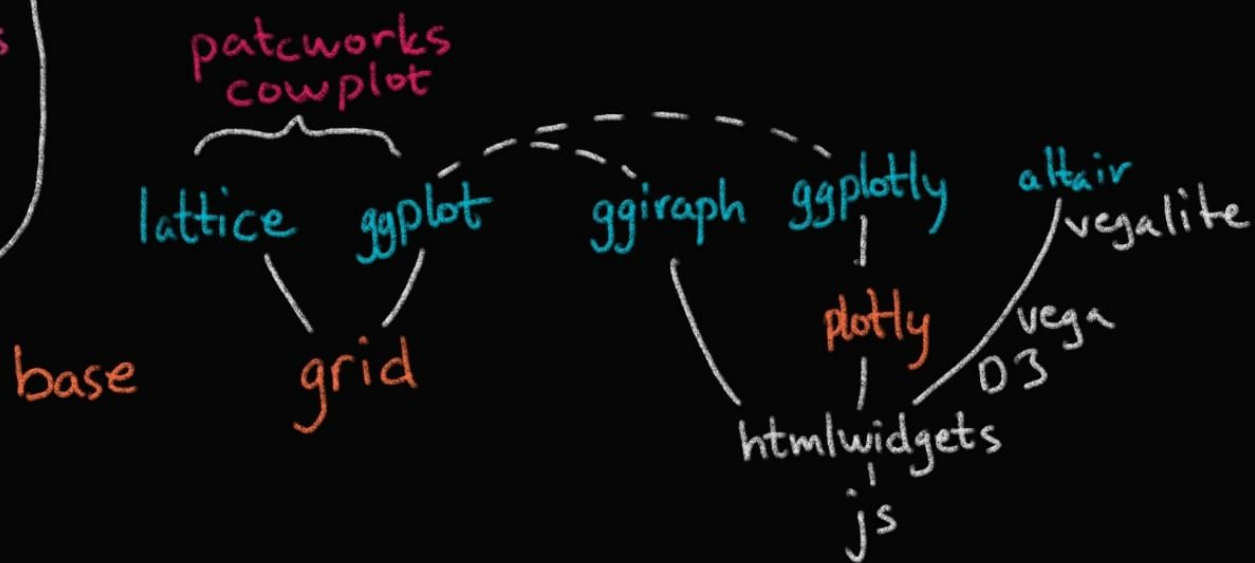 s
patcworks
cowplot
lattice ggplot ggiraph ggplotly altair
vegalite
base grid plotly vega
D3
htmlwidgets
js